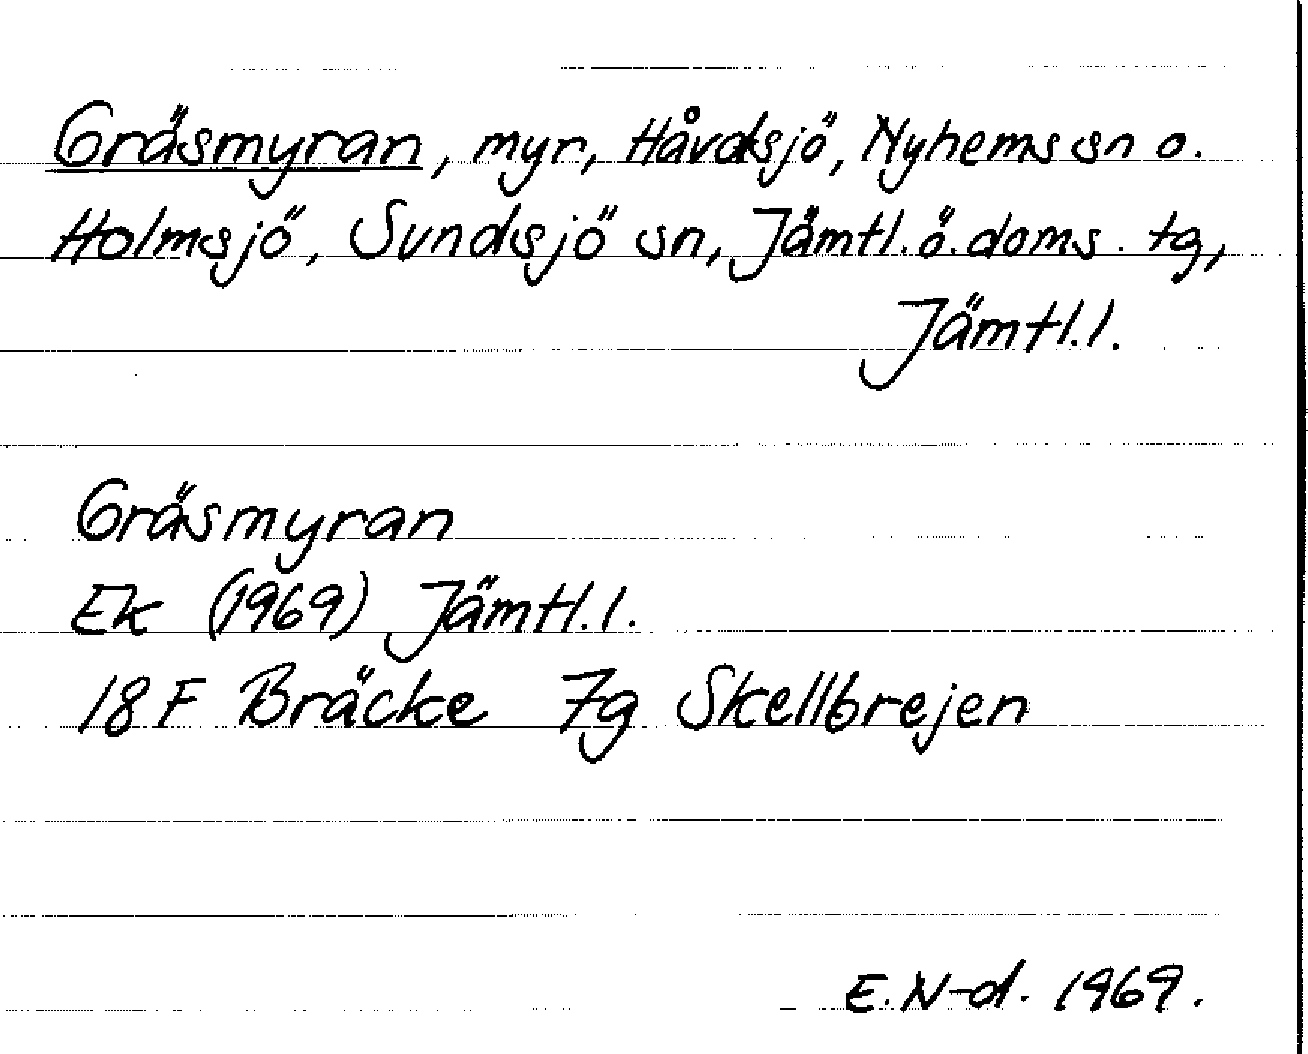 Gräsmyran, myr, Håvdsjö, Nyhems sn o.
Holmsjö, Sundsjö sn, Jämtl.ö.doms.tg,
Jämtl.l.
Gräsmyran
Ek (1969) Jämtl.l.
18 F Bräcke 7g Skellbrejen
E.N-d. 1969.